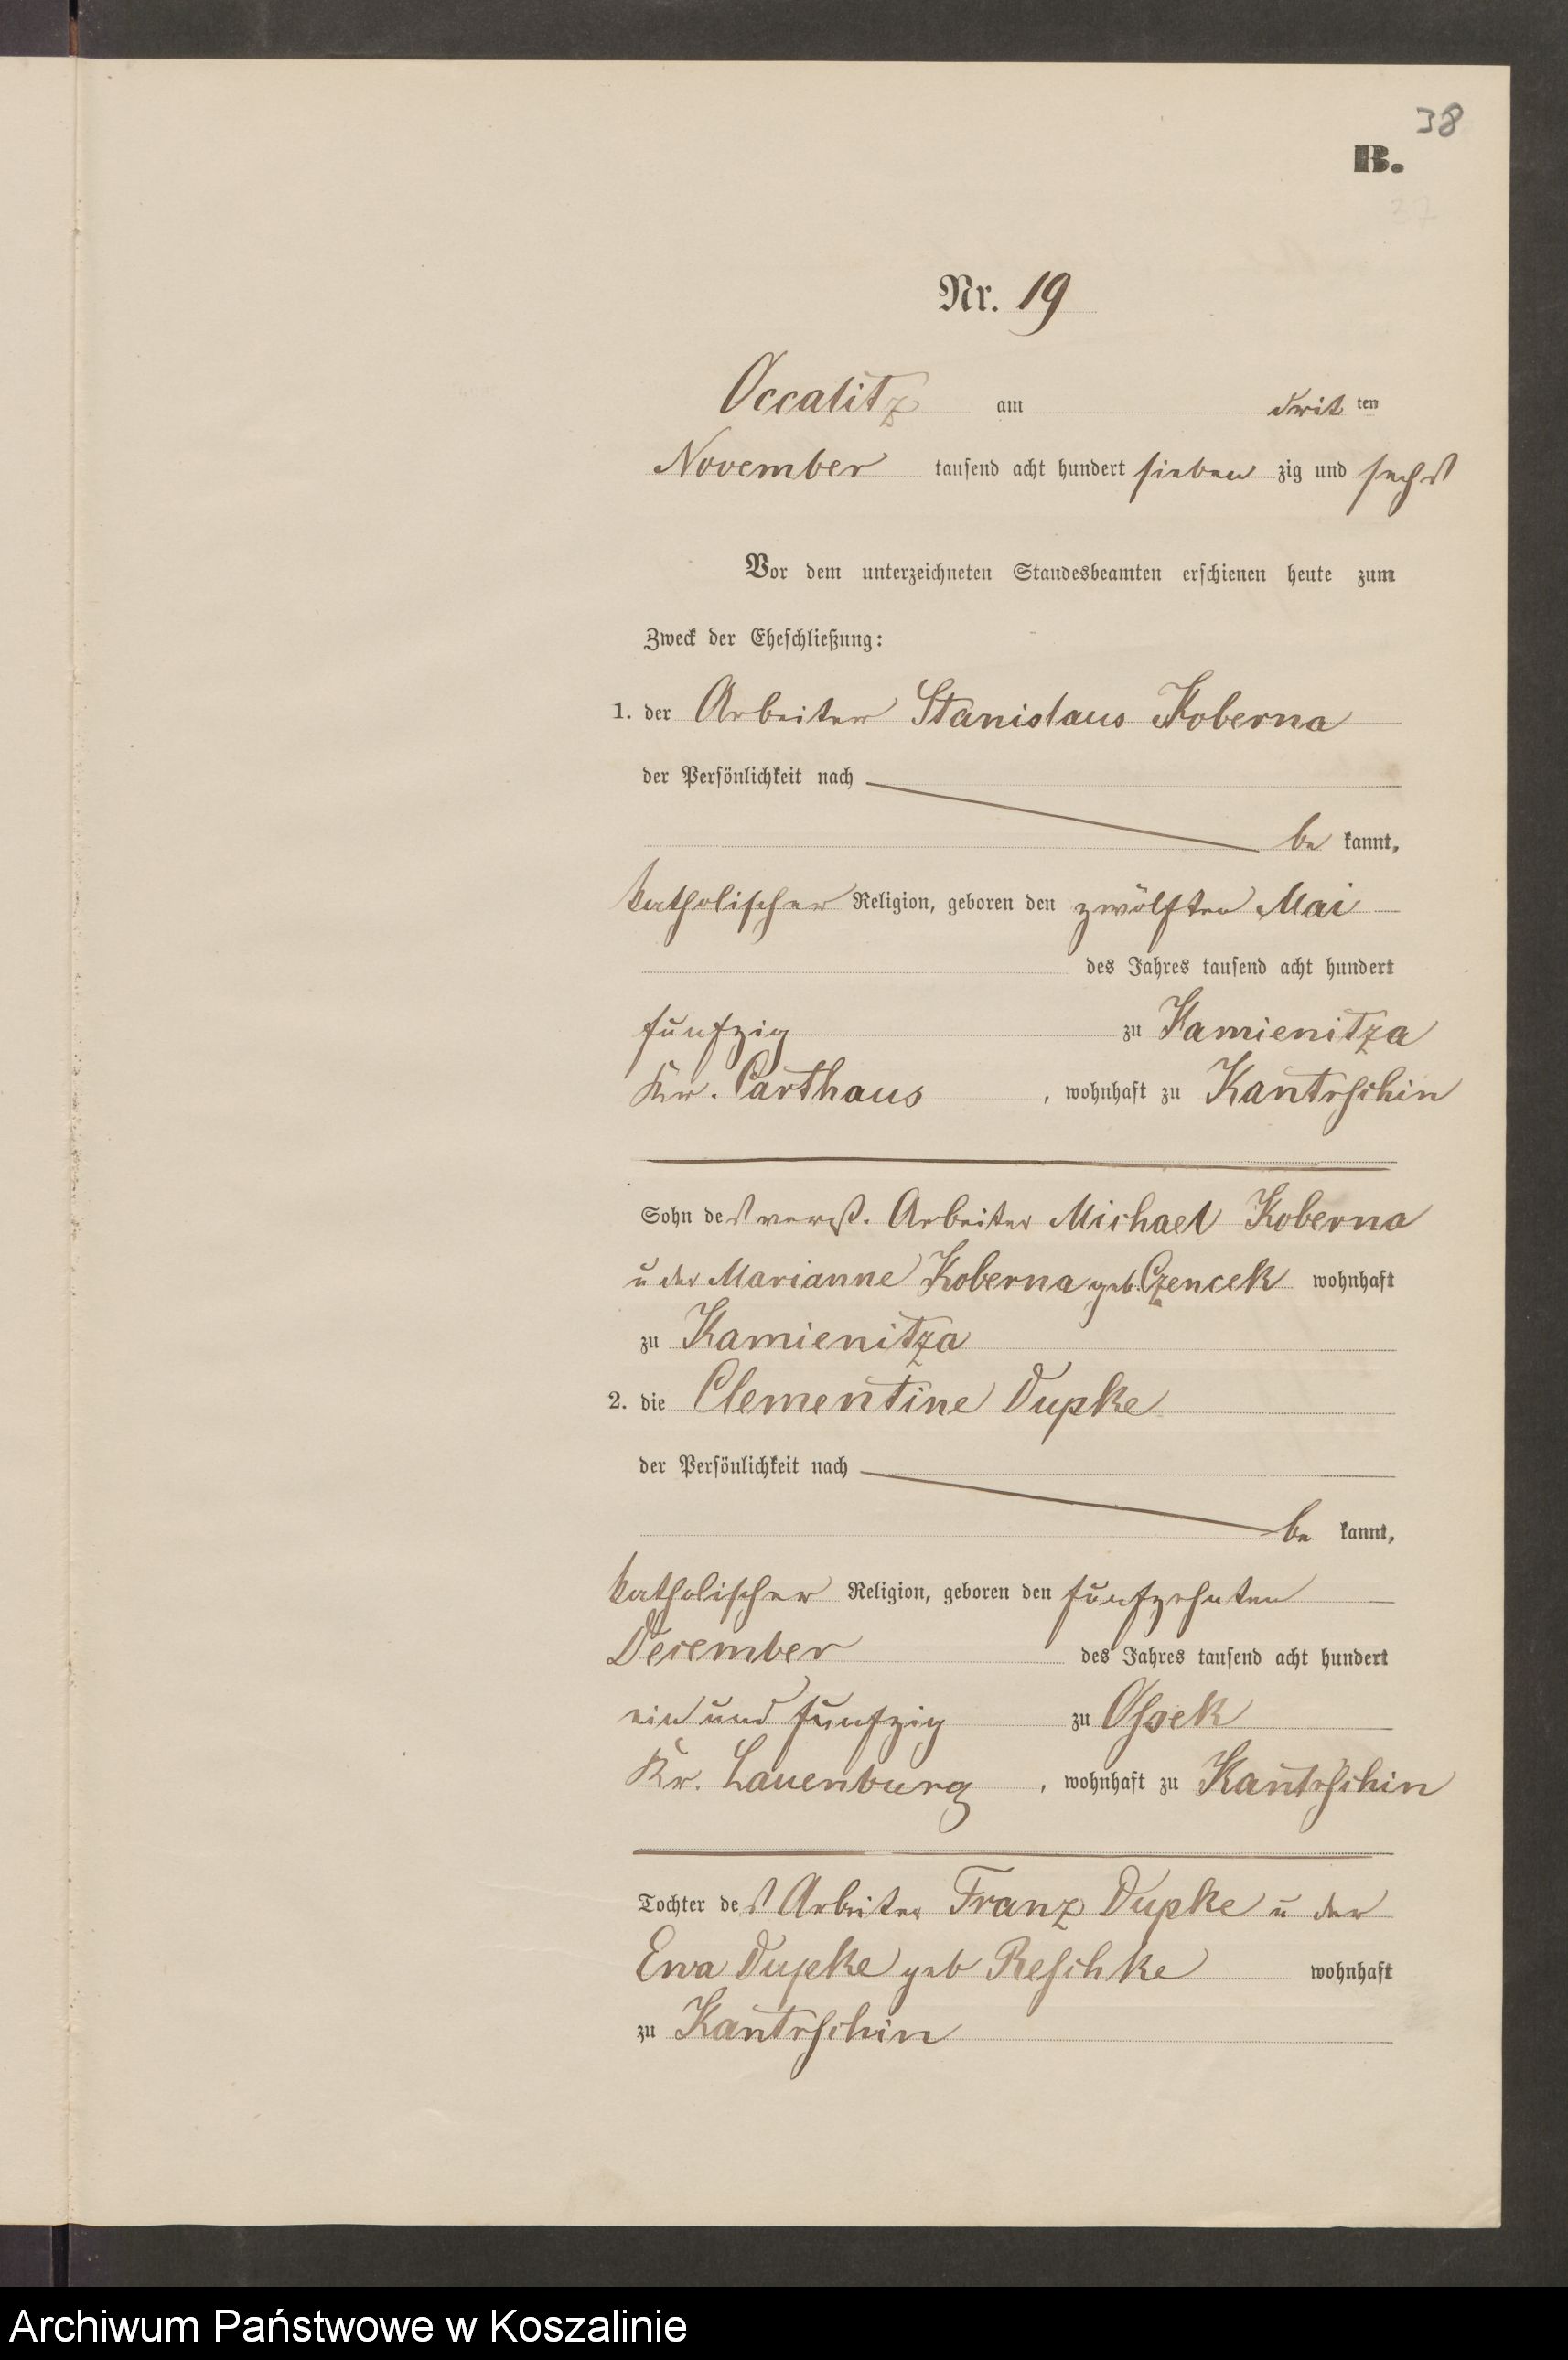 38
B.
27
Nr. 19
Occalitz am drit ten
November tausend acht hundert sieben zig und sechs
Vor dem unterzeichneten Standesbeamten erschienen heute zum
Zweck der Eheschließung:
1. der Arbeiter Stanislaus Koberna
der Persönlichkeit nach
be kannt,
katholischer Religion, geboren den zwölften Mai
des Jahres tausend acht hundert
fünfzig zu Kamienitza
Kr. Carthaus , wohnhaft zu Kantrschin
Sohn des verst. Arbeiter Michael Koberna
u der Marianne Koberna geb. Czencek wohnhaft
zu Kamienitza
2. die Clementine Dupke
der Persönlichkeit nach
be kannt,
katholischer Religion, geboren den fünfzehnten
December des Jahres tausend acht hundert
ein und fünfzig zu Ossek
Kr. Lauenburg , wohnhaft zu Kantrschin
Tochter des Arbeiter Franz Dupke u der
Ewa Dupke geb Reschke wohnhaft
zu Kantrschin
Archiwum Państwowe w Koszalinie